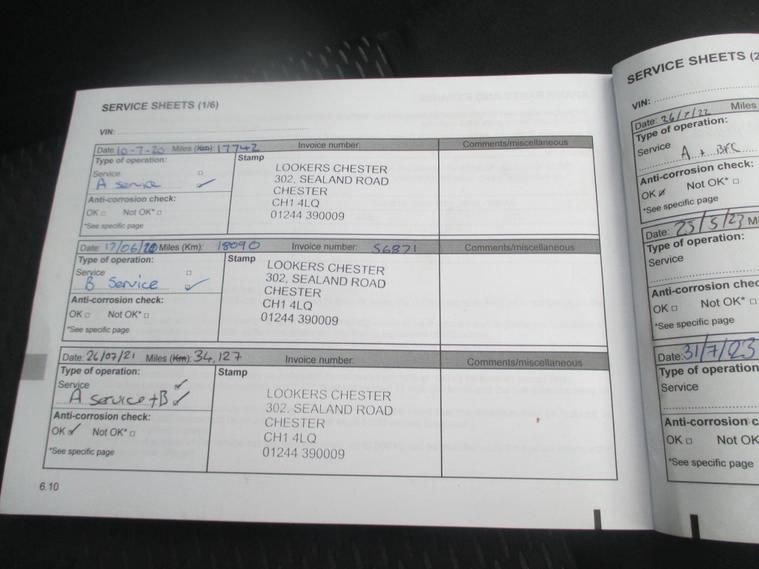 SERVICE SHEETS (1/6)
VIN:
Date: 10-7-20 Miles (Km): 17742 Invoice number: Comments/miscellaneous
Type of operation: Stamp
Service
A service
Anti-corrosion check:
OK Not OK*
*See specific page
LOOKERS CHESTER
302, SEALAND ROAD
CHESTER
CH1 4LQ
01244 390009
Date: 17/06/20 Miles (Km): 18090 Invoice number: 56871 Comments/miscellaneous
Type of operation: Stamp
Service
B Service
Anti-corrosion check:
OK Not OK*
*See specific page
LOOKERS CHESTER
302, SEALAND ROAD
CHESTER
CH1 4LQ
01244 390009
Date: 26/07/21 Miles (Km): 34,127 Invoice number: Comments/miscellaneous
Type of operation: Stamp
Service
A service + B
Anti-corrosion check:
OK Not OK*
*See specific page
LOOKERS CHESTER
302, SEALAND ROAD
CHESTER
CH1 4LQ
01244 390009
6.10
SERVICE SHEETS (2
VIN:
Date: 26/7/22 Miles
Type of operation:
Service
A + BFC
Anti-corrosion check:
OK Not OK*
*See specific page
Date: 23/5/23 Mi
Type of operation:
Service
Anti-corrosion chec
OK Not OK*
*See specific page
Date: 31/7/23
Type of operation
Service
Anti-corrosion c
OK Not OK
*See specific page